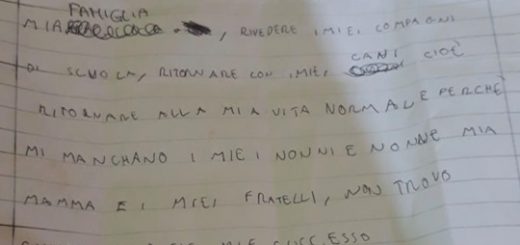 FAMIGLIA
MIA , RIVEDERE I MIEI COMPAGNI
DI SCUOLA, RITORNARE CON I MIEI CANI CIOÈ
RITORNARE ALLA MIA VITA NORMALE PERCHÈ
MI MANCHANO I MIEI NONNI E NONNE MIA
MAMMA E I MIEI FRATELLI, NON TROVO
SUCCESSO